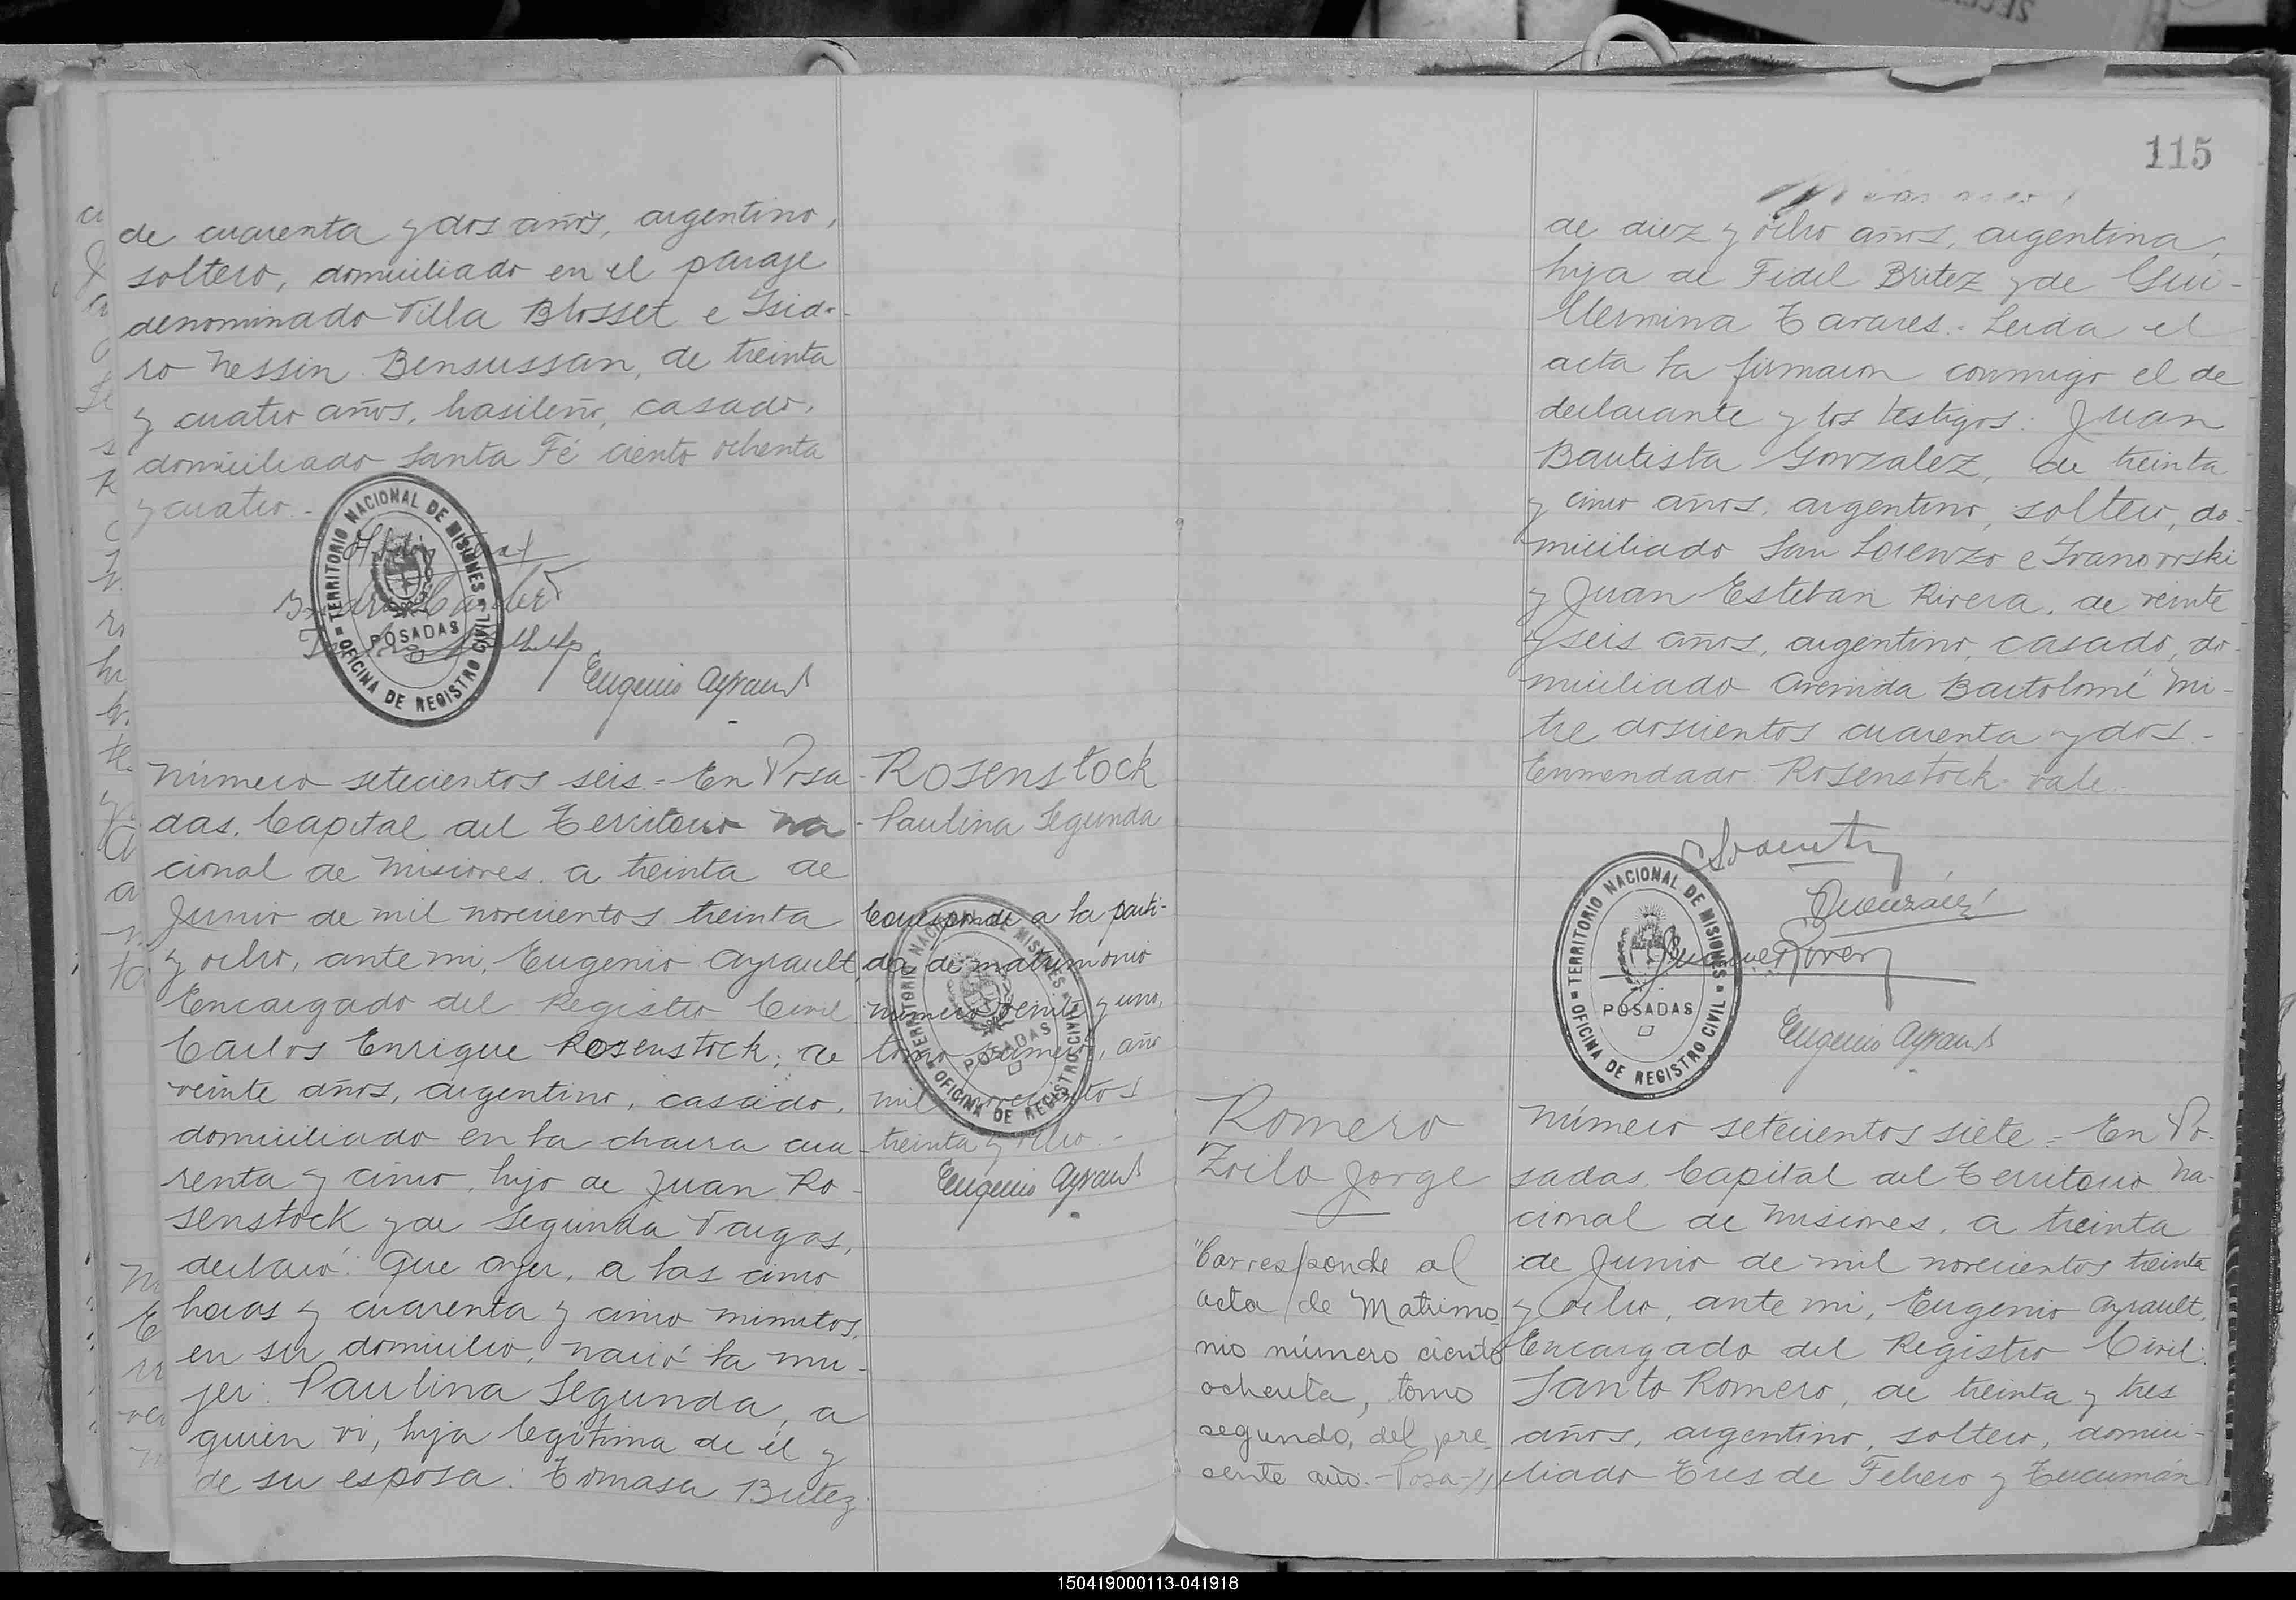 de cuarenta y dos años, argentino,
soltero, domiciliado en el paraje
denominado Villa Blosset e Isido-
ro Nessin Bensussan, de treinta
y cuatro años, brasileño, casado,
domiciliado Santa Fé ciento ochenta
y cuatro.-
TERRITORIO NACIONAL DE MISIONES
POSADAS
OFICINA DE REGISTRO CIVIL
Eugenio Ayrault
Número setecientos seis = En Posa-
das, Capital del Territorio Na-
cional de Misiones, a treinta de
Junio de mil novecientos treinta
y ocho, ante mi, Eugenio Ayrault,
Encargado del Registro Civil
Carlos Enrique Rosenstock, de
veinte años, argentino, casado,
domiciliado en la chacra cua-
renta y cinco, hijo de Juan Ro-
senstock y de Segunda Vargas,
declaró: Que ayer, a las cinco
horas y cuarenta y cinco minutos,
en su domicilio, nació la mu-
jer: Paulina Segunda, a
quien vi, hija legitima de él y
de su esposa: Tomasa Britez
Rosenstock
Paulina Segunda
Corresponde a la parti-
da de matrimonio
número veinte y uno,
tomo primero, año
mil novecientos
treinta y ocho.-
Eugenio Ayrault
TERRITORIO NACIONAL DE MISIONES
POSADAS
OFICINA DE REGISTRO CIVIL
115
de diez y ocho años, argentina,
hija de Fidel Britez y de Gui-
llermina Tavares.- Leida el
acta la firmaron conmigo el de
declarante y los testigos: Juan
Bautista Gonzalez, de treinta
y cinco años, argentino, soltero, do-
miciliado San Lorenzo e Ivanovski
y Juan Esteban Rivera, de veinte
y seis años, argentino, casado, do-
miciliado Avenida Bartolomé Mi-
tre doscientos cuarenta y dos.-
Enmendado Rosenstock. vale.
TERRITORIO NACIONAL DE MISIONES
POSADAS
OFICINA DE REGISTRO CIVIL
Eugenio Ayrault
Romero
Zoilo Jorge
"Corresponde al
acta de Matrimo-
nio número ciento
ochenta, tomo
segundo, del pre-
sente año.- Posa-//
Número setecientos siete = En Po-
sadas, Capital del Territorio Na-
cional de Misiones, a treinta
de Junio de mil novecientos treinta
y ocho, ante mi, Eugenio Ayrault,
Encargado del Registro Civil:
Santo Romero, de treinta y tres
años, argentino, soltero, domici-
liado Tres de Febrero y Tucumán
150419000113-041918